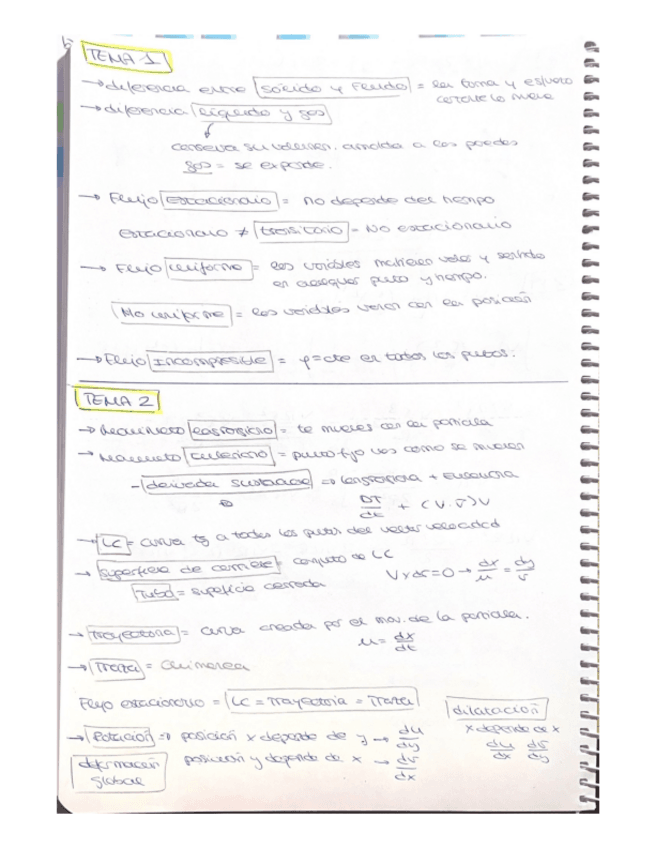 TEMA 1
→ diferencia entre sólido y fluido = la forma y esfuerzo
cortante lo mueve
→ diferencia líquido y gas
conserva su volumen. amolda a las paredes
gas = se expande.
→ Flujo estacionario = no depende del tiempo
estacionario ≠ transitorio = No estacionario
→ Flujo uniforme = las variables mantienen valor y sentido
en cualquier punto y tiempo.
No uniforme = las variables varían con la posición
→ Flujo Incompresible = ρ=cte en todos los puntos.
TEMA 2
→ Movimiento lagrangiano = te mueves con la partícula
→ Movimiento euleriano = punto fijo ves como se mueven
- derivada sustancial → lagrangiana + euleriana
DT/dt + (V·∇)V
→ LC = curva tg a todos los puntos del vector velocidad
→ superficie de corriente = conjunto de LC
Tubo = superficie cerrada
V x dr = 0 → dx/u = dy/v
→ trayectoria = curva creada por el mov. de la partícula.
u = dx/dt
→ Traza = chimenea
Flujo estacionario = LC = Trayectoria = Traza
dilatación
x depende de x
du/dx dv/dy
→ Rotación → posición x depende de y → du/dy
deformación global
posición y depende de x → dv/dx